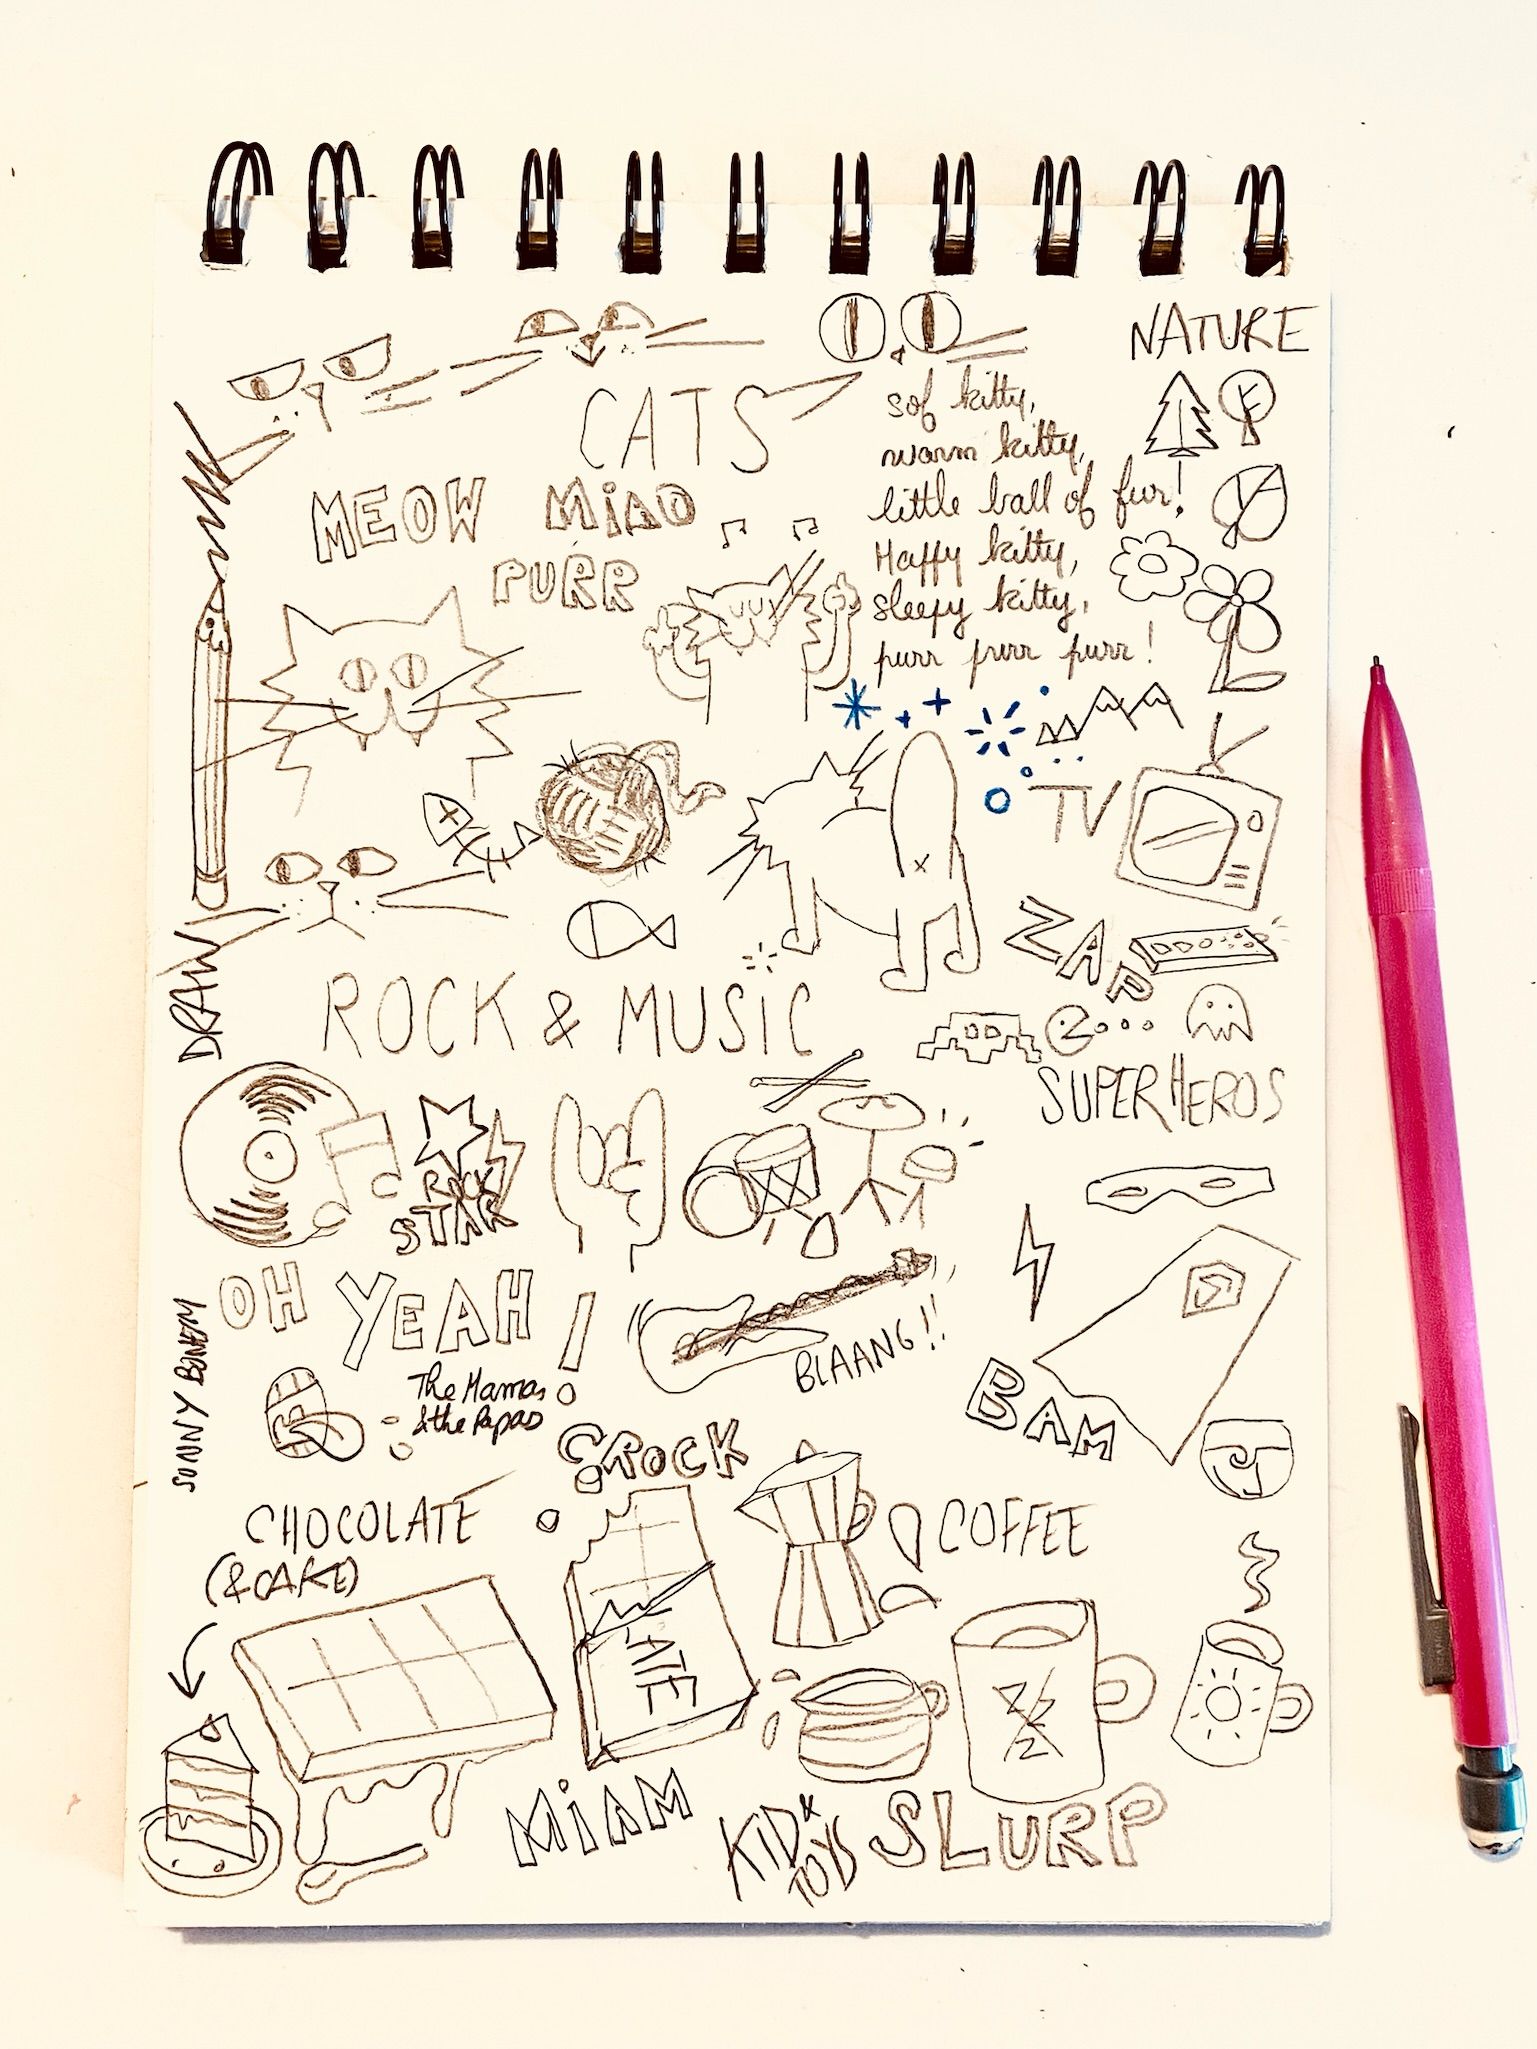 NATURE
CATS
sof kitty,
warm kitty,
little ball of fur!
Haffy kitty,
sleepy kitty,
purr purr purr!
MEOW MiAO
PURR
TV
DRAW
ZAP
ROCK & MUSIC
SUPERHEROS
ROCK
STAR
OH YEAH!
BLAANG!!
The Mamas
& the Papas
BAM
SONNY BONEM
CROCK
CHOCOLATE
(& CAKE)
COFFEE
LATE
MiAM
KID
TOYS
SLURP